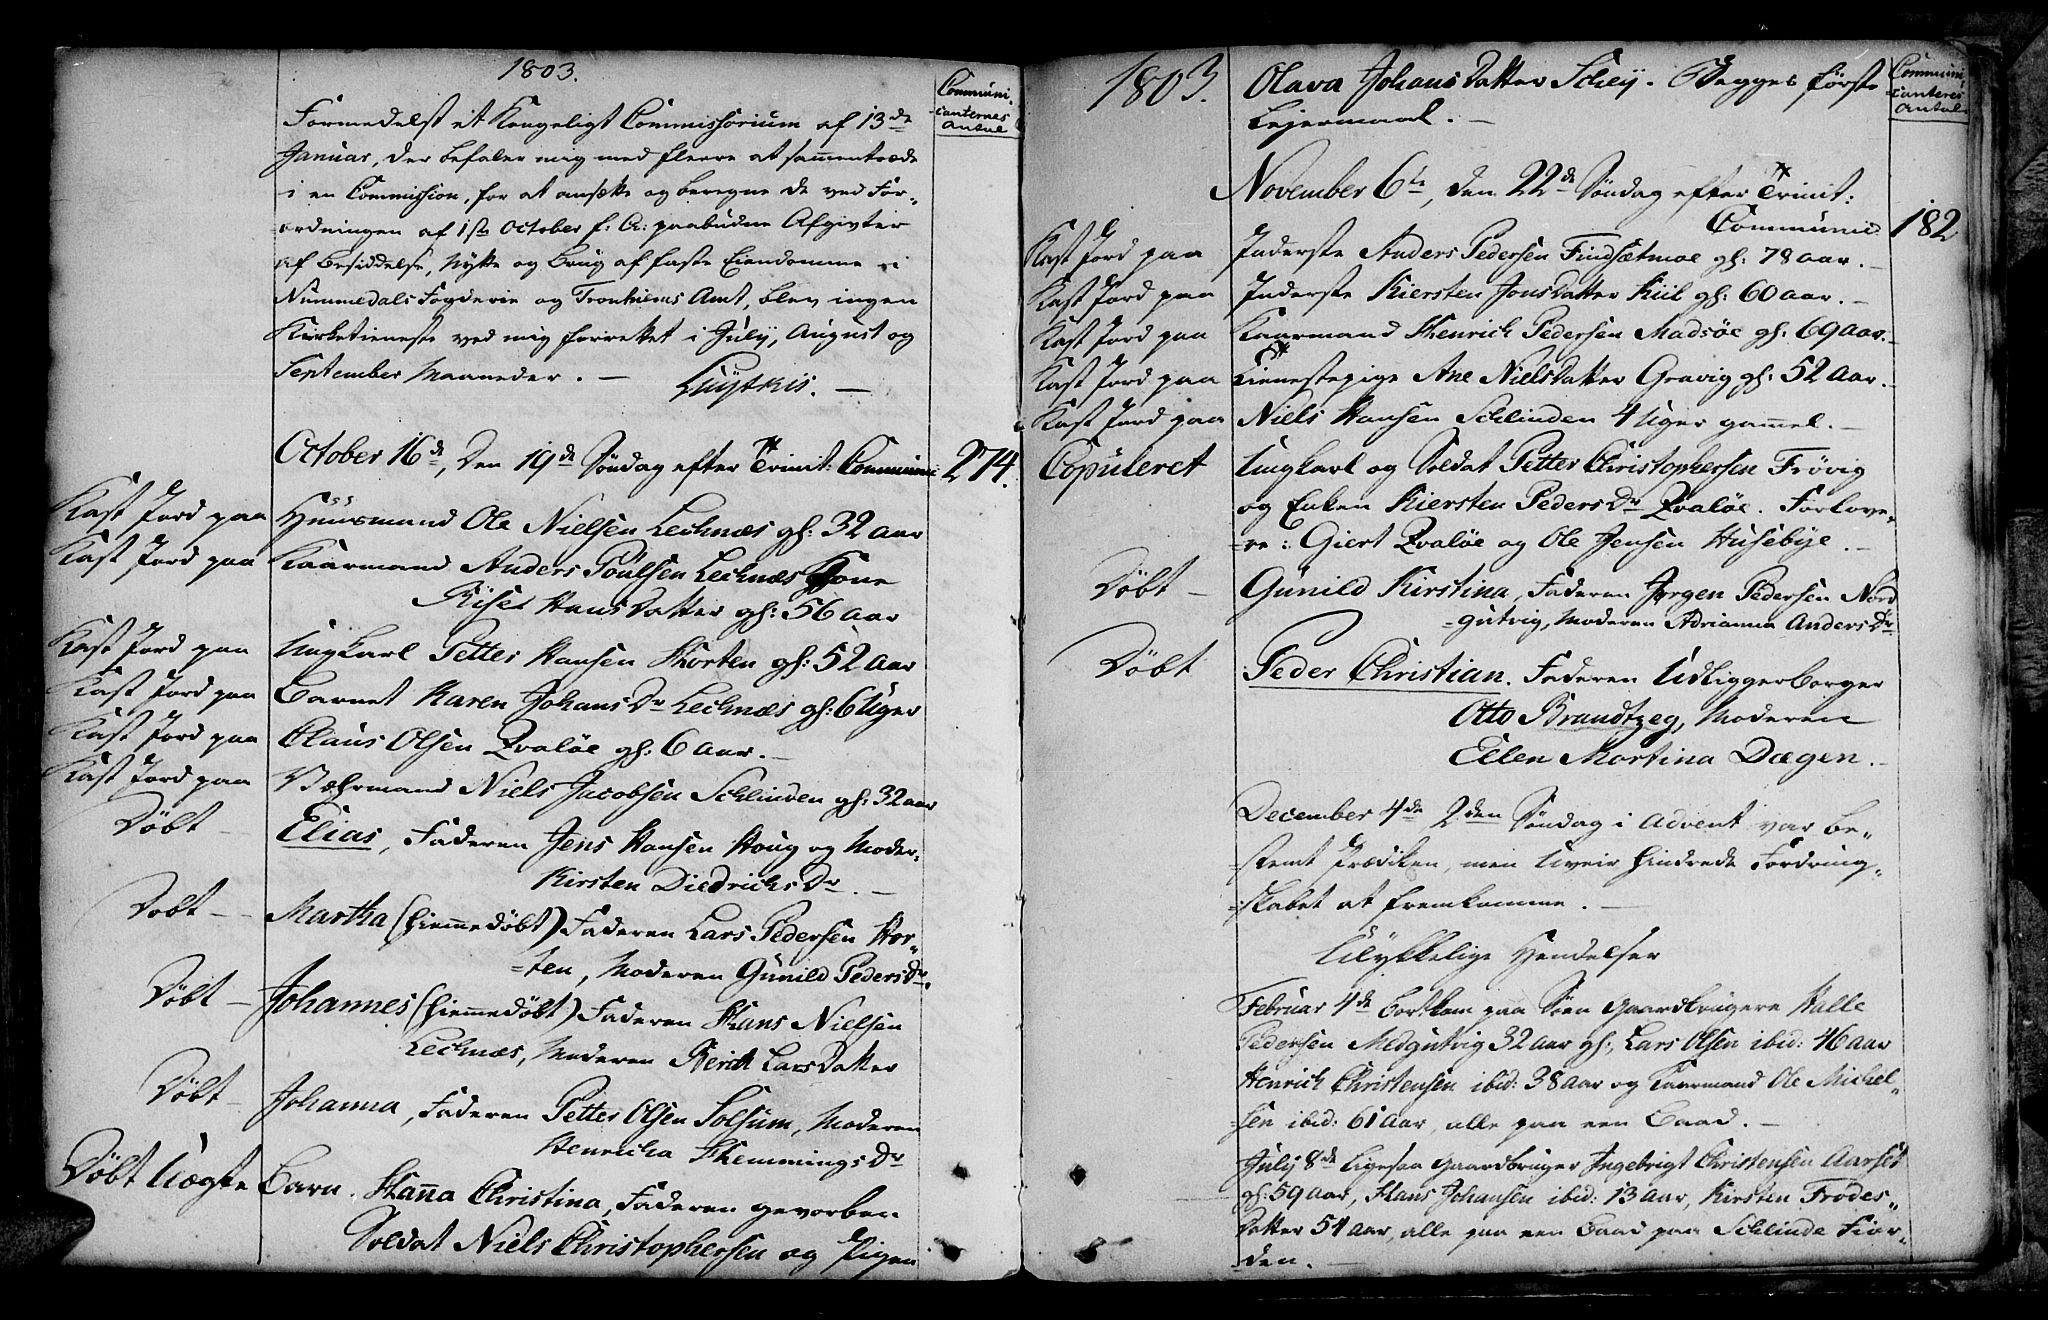 1803.
Communi-
canternes
Antal
Formedelst et Kongeligt Commissorium af 13de
Januar, der befaler mig med fleere at sammentræde
i en Commission, for at ansætte og beregne de ved For„
ordningen af 1ste October f: A: paabudne Afgivter
af Besiddelse, Nytte og Brug af faste Eiendomme i
Nummedals Fogderie og Tronhiems Amt, blev ingen
Kirketieneste ved mig forrettet i July, August og
September Maaneder. —
October 16de, Den 19de Søndag efter Trinit: Communic 274.
Kast Jord paa Huusmand Ole Nielsen Lechnæs gl: 32 aar
Kast Jord paa Kaarmand Anders Poulsen Lechnæs Kone
Hans Datter gl: 56 aar
Kast Jord paa Ungkarl Petter Hansen Horten gl: 52 aar
Kast Jord paa Barnet Karen Johans Dr Lechnæs gl: 6 Uger
Kast Jord paa Claus Olsen Qvaløe gl: 6 aar. —
Kast Jord paa Niels Jacobsen Schlinden gl: 32 aar
Døbt — Elias, Faderen Jens Hansen Houg og Moder„
Kirsten Diedrichs Dr. —
Døbt — Martha (hiemmedøbt) Faderen Lars Pedersen Hor„
=ten, Moderen Gunild Peders Dr.
Døbt — Johannes (hiemmedøbt) Faderen Hans Nielsen
Lechnæs, Moderen Berit Lars Datter
Døbt — Johanna, Faderen Petter Olsen Solsum, Moderen
Henricha Flemmings Dr
Døbt Uægte Barn. Hanna Christina, Faderen gevorben
Soldat Niels Christophersen og Pigen
1803.
Communi-
canteres
Antal
Olava Johans Datter Schey. Begges første
Lejermaal. —
November 6te, den 22de Søndag efter Trinit:
Communic 182
Kast Jord paa Inderste Anders Pedersen Findsætmoe gl: 78 aar. —
Kast Jord paa Inderste Kiersten Jons Datter Kiil gl: 60 aar. —
Kast Jord paa Kaarmand Henrich Pedersen Madsøe gl: 69 aar. —
Kast Jord paa Tienestepige Ane Niels Datter Gravig gl: 52 aar. —
Kast Jord paa Niels Hansen Schlinden 4 Uger gammel. —
Copuleret Ungkarl og Soldat Petter Christophersen Frøvig
og Enken Kiersten Peders Dr Qvaløe. Forlove„
=re: Giert Qvaløe og Ole Jensen Husebye. —
Døbt — Gunild Kirstina, Faderen Jørgen Pedersen Nord
=gutvig, Moderen Adrianna Anders Dr
Døbt Peder Christian. Faderen Udliggerborger
Otto Brandtzeg, Moderen
Ellen Martina Dægen. —
December 4de 2den Søndag i Advent var be„
=stemt Prædiken, men Uveir hindrede Fordring„
=skabet at fremkomme. —
Ulykkelige Hendelser
Februar 4de bortkom paa Søen Gaardbrugere Halle
Pedersen Medgutvig 32 aar gl:, Lars Olsen ibid: 46 aar
Henrich Christensen ibid: 38 aar og Kaarmand Ole Michel„
=sen ibid: 61 aar, alle paa een Baad. —
July 8de Ligesaa Gaardbruger Ingebrigt Christensen Aarset
gl: 59 aar, Hans Johansen ibid: 13 aar, Kirsten Frodes„
Datter 54 aar, alle paa een Baad paa Schlinde Fior„
=den. —